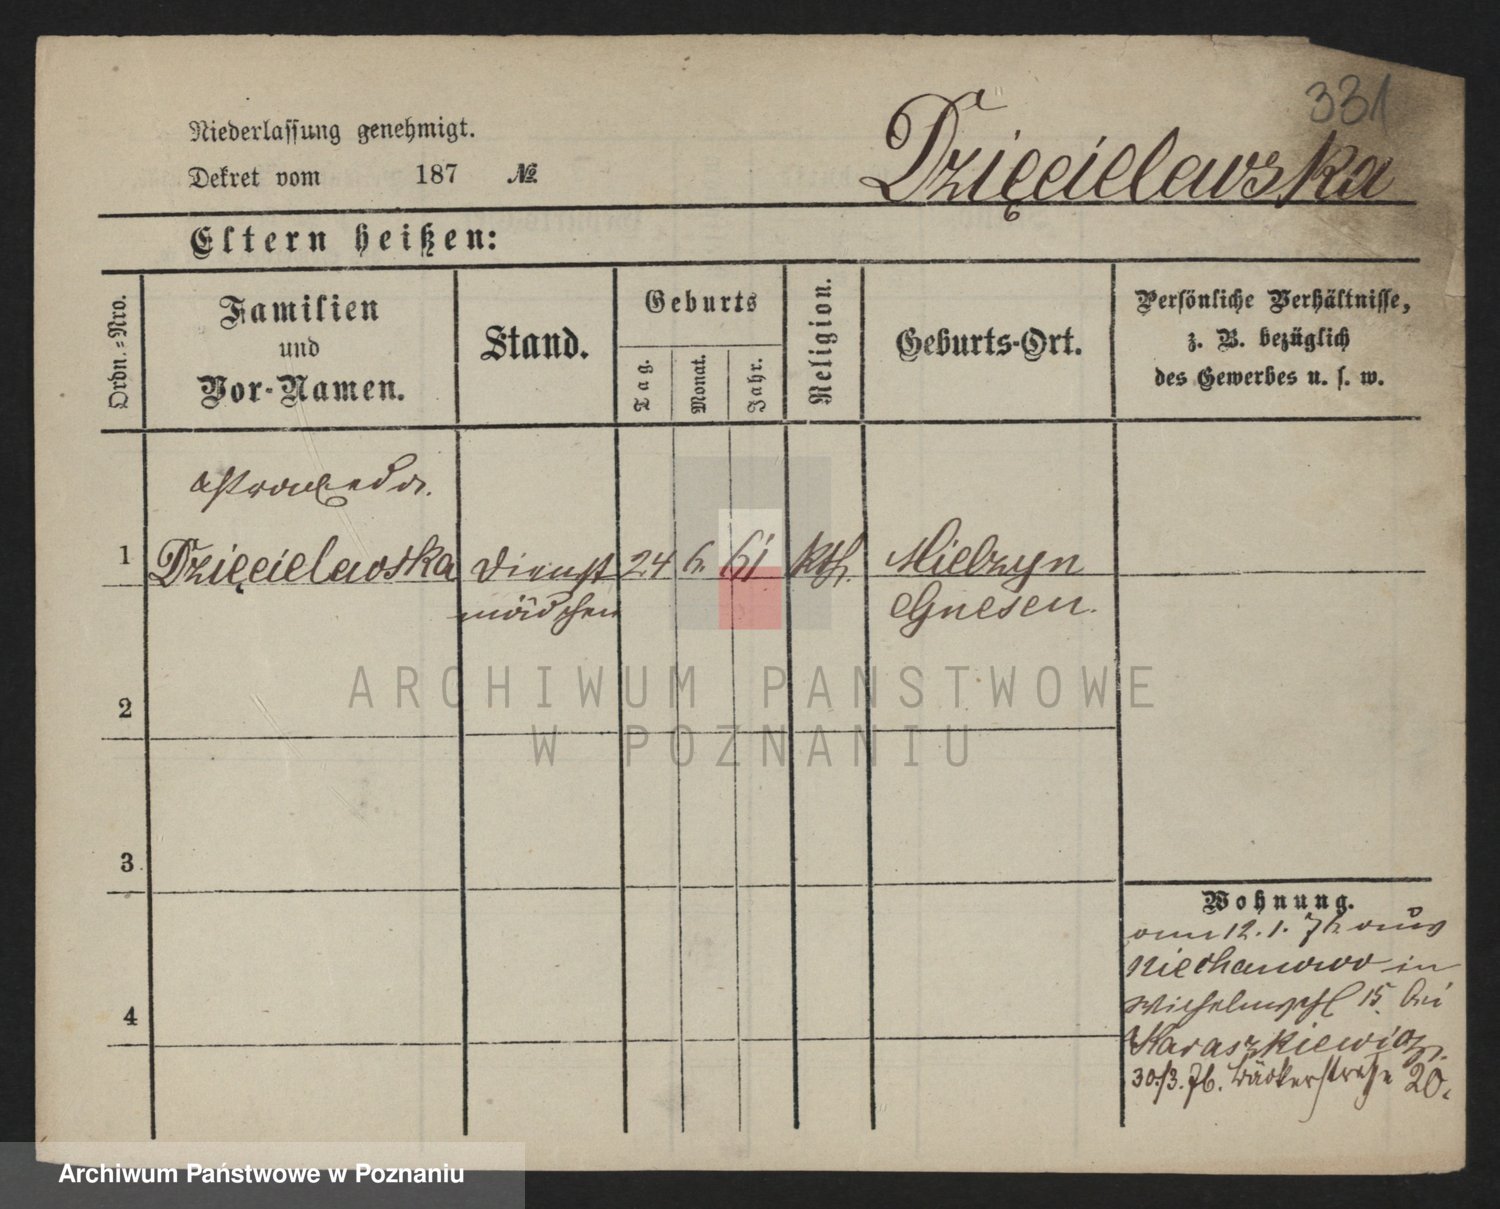 331
Dzięcielewska
Niederlassung genehmigt.
Dekret vom 187 №
Eltern heißen:
Ordn.-Nro.
Familien
und
Vor-Namen.
Stand.
Geburts
Tag.
Monat.
Jahr.
Religion.
Geburts-Ort.
Persönliche Verhältnisse,
z. B. bezüglich
des Gewerbes u. s. w.
1 Dzięcielewska Dienst 24 6. 61 kth. Mielzyn
mädchen Gnesen.
2
3
4
Wohnung.
am 12.1.76 aus
Niechanowo in
Wilhelmspl 15. bei
Karaszkiewicz.
30./3. 76. Bäckerstraße 20.
ARCHIWUM PANSTWOWE
W POZNANIU
Archiwum Państwowe w Poznaniu